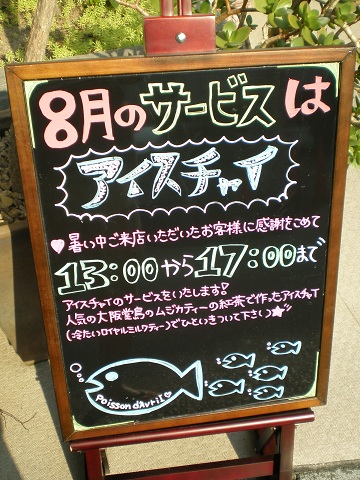 8月のサービスは
アイスチャイ
♥暑い中ご来店いただいたお客様に感謝をこめて
13:00から17:00まで
アイスチャイのサービスをいたします!
人気の大阪堂島のムジカティーの紅茶で作ったアイスチャイ
(冷たいロイヤルミルクティー)でひといきついて下さい★
Poisson d'Avril